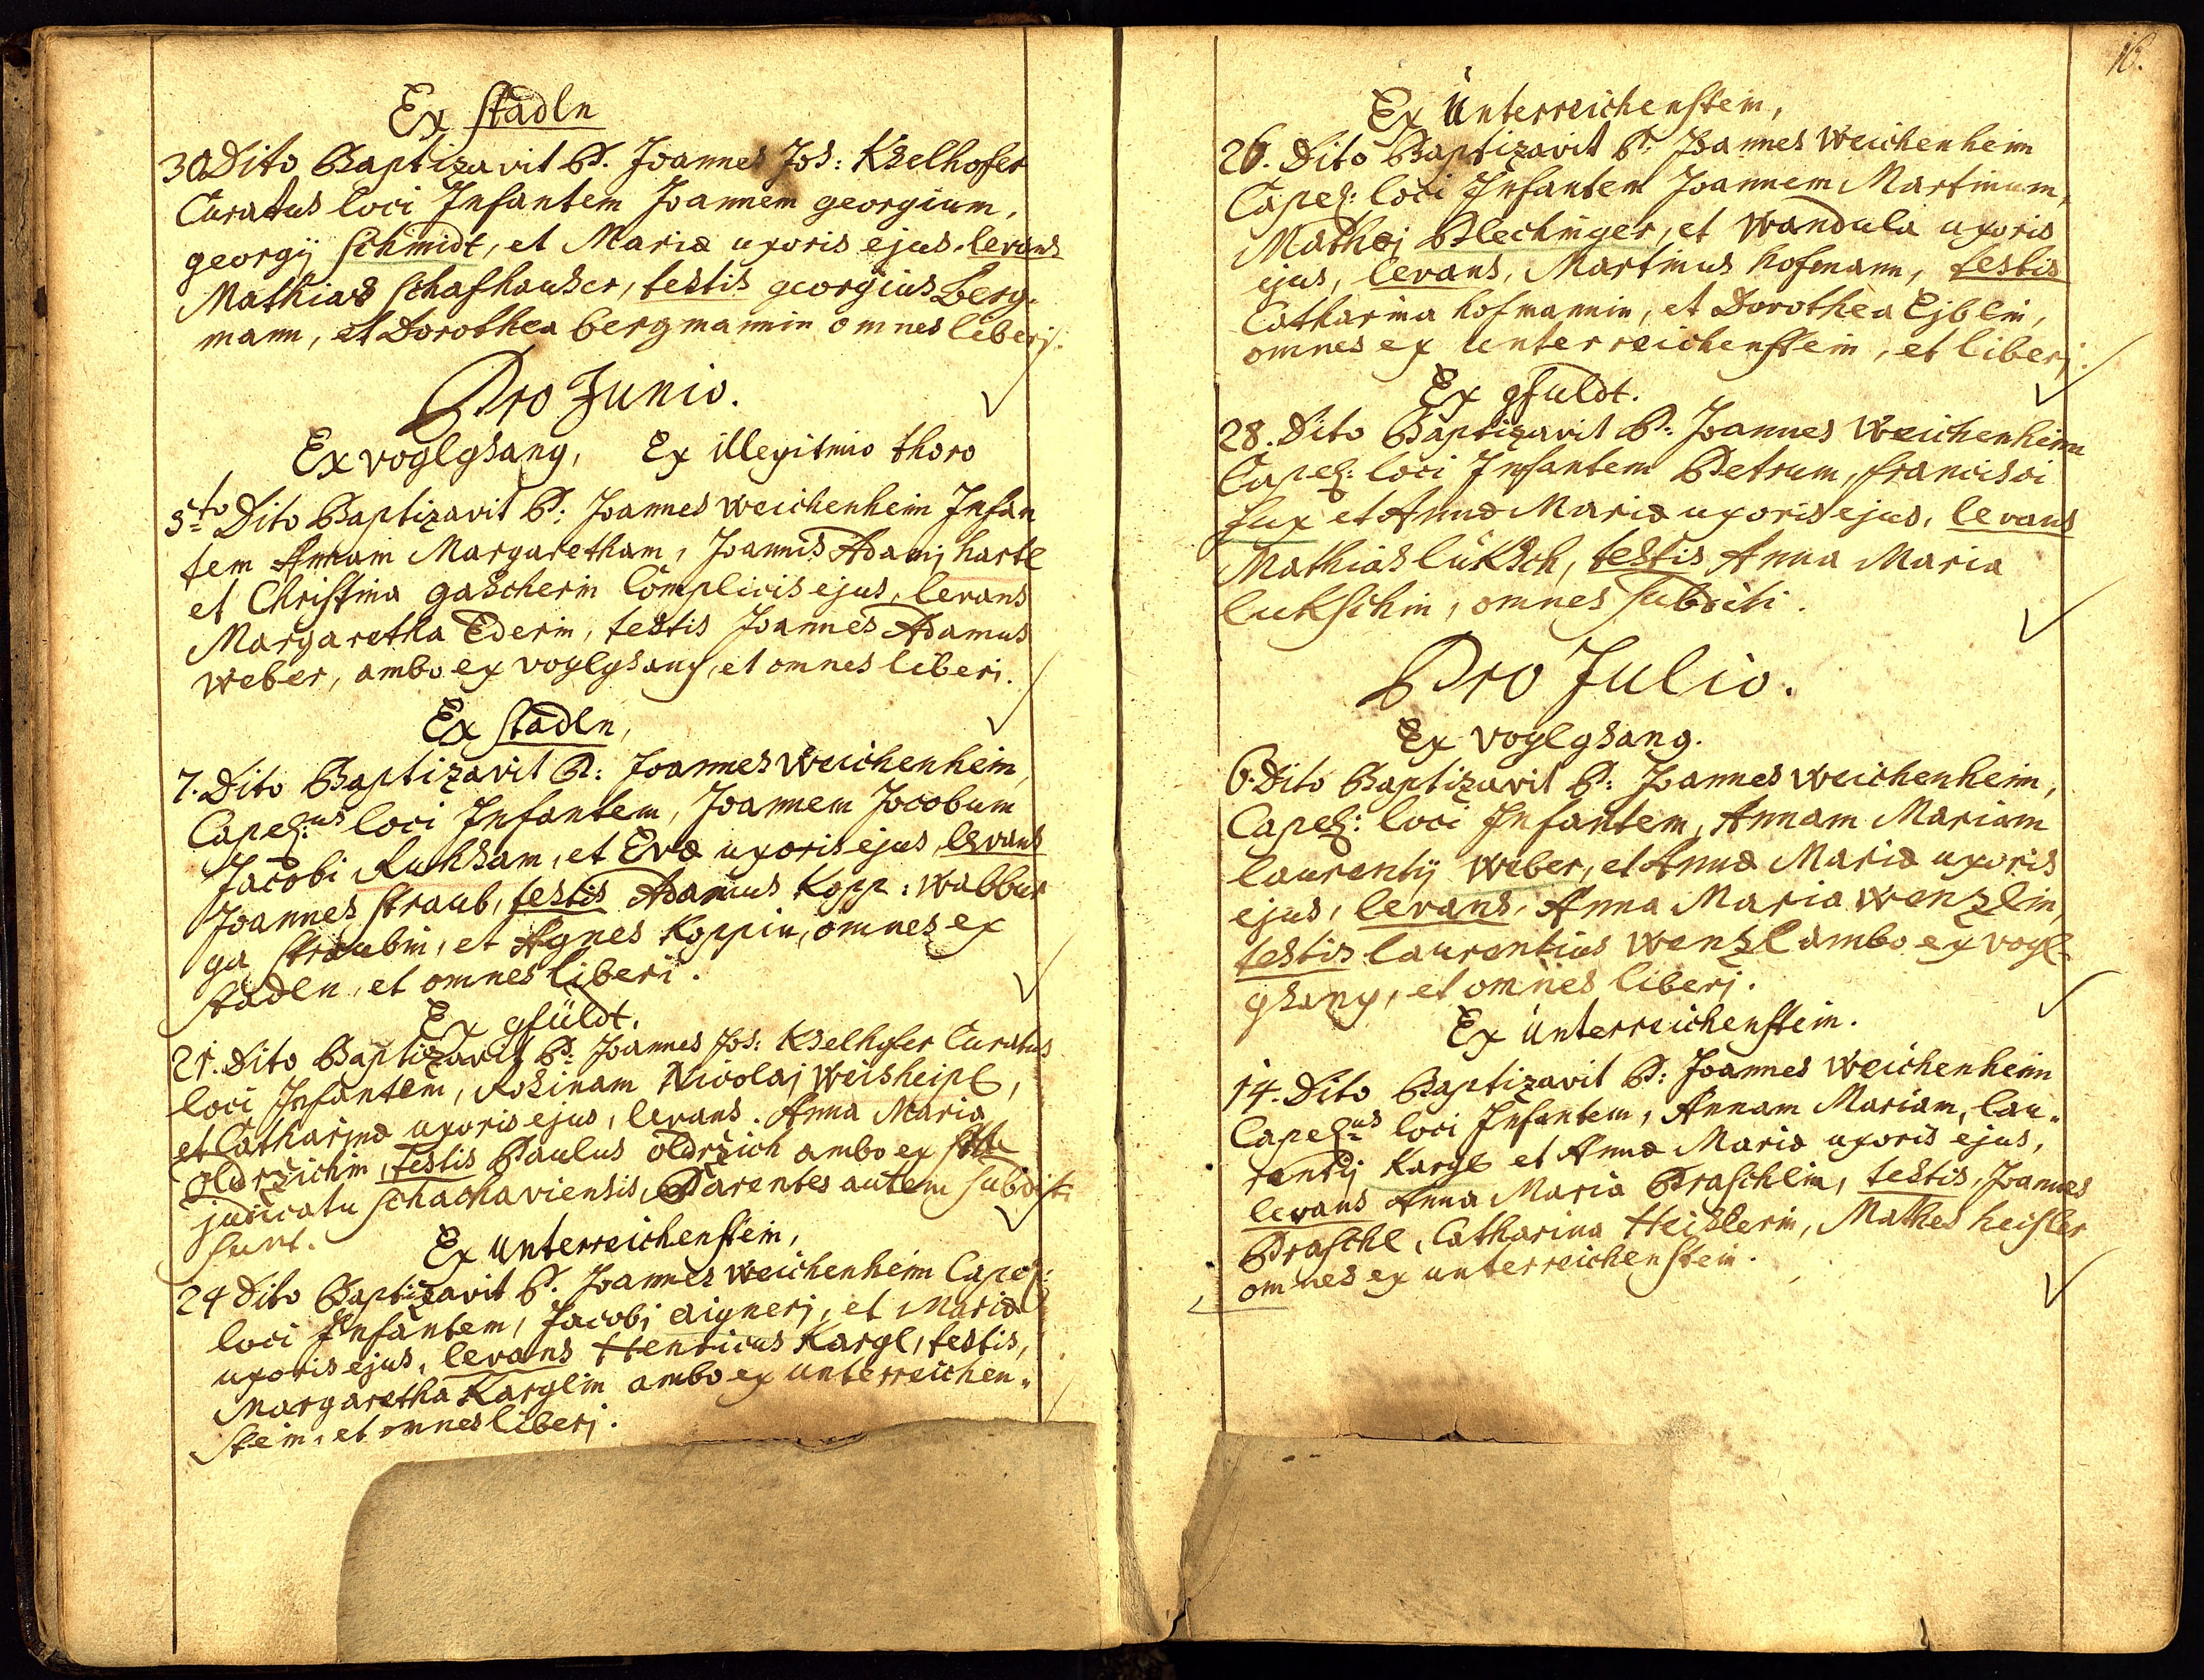 Ex Stadln
30 Dito Baptizavit P. Joannes Jos: Kselhofer
Curatus loci Infantem Joannem georgium,
georgij Schmidt, et Mariæ uxoris ejus. levans
Mathias Schafhauser, testis georgius Berg-
mann, et Dorothea bergmannin omnes liberj.
Pro Junio.
Ex voglgsang, Ex illegitmio thoro
5to Dito Baptizavit P: Joannes weichenheim Infan
tem Annam Margaretham, Joannis Adamj hartl
et Christina gascherin Complicis ejus, levans
Margaretha Ederin, testis Joannes Adamus
weber, ambo ex voglgsang, et omnes liberi.
Ex Stadln,
7. Dito Baptizavit P: Joannes weichenheim,
Capel:us loci Infantem, Joannem Jocobum
Jacobi Ruksam, et Evæ uxoris ejus, levans
Joannes straub, testis Adamus Kopp: wabbur
ga straubin, et Agnes Koppin, omnes ex
stadln, et omnes liberi.
Ex gfüldt.
21. Dito Baptizavit P: Joannes Jos: Kselhofer Curatus
loci Infantem, Rosinam Nicolaj weisheipl,
et Catharinæ uxoris ejus, levans. Anna Maria
oldrzichin, testis Paulus oldrzich ambo ex
judicatu schachaviensis, Parentes autem subditi
sunt.
Ex Unterreichenstein,
24 Dito Baptizavit P. Joannes weichenheim Capel:
loci Infantem, Jacobj aignerj, et Mariæ
uxoris ejus, levans Henricus Kargl, testis,
Margaretha Karglin ambo ex unterreichen-
stein, et omnes liberj.
16.
Ex Unterreichenstein,
26. Dito Baptizavit P: Joannes weichenheim
Capel: loci Infantem Joannem Martinum,
Mathej Plechinger, et wandula uxoris
ejus, levans, Martinus hofmann, testis
Catharina hofmannin, et Dorothea Ejblin,
omnes ex unterreichenstein, et liberj.
Ex gfuldt.
28. Dito Baptizavit P: Joannes weichenheim
Capel: loci Infantem Petrum, francisci
fux et Annæ Mariæ uxoris ejus, levans
Mathias luksch, testis Anna Maria
lukschin, omnes subditi.
Pro Julio.
Ex voglgsang.
6. Dito Baptizavit P: Joannes weichenheim,
Capel: loci Infantem, Annam Mariam
laurentij weber, et Annæ Mariæ uxoris
ejus, levans, Anna Maria wenzlin,
testis laurentius wenzl ambo ex vogl-
gsang, et omnes liberj.
Ex unterreichenstein.
14. Dito Baptizavit P: Joannes weichenheim
Capel:us loci Infantem, Annam Mariam, lau-
rentij Kargl et Annæ Mariæ uxoris ejus,
levans Anna Maria Praschlin, testis, Joannes
Praschl, Catharina Heislerin, Mathes heisler
omnes ex unterreichenstein.